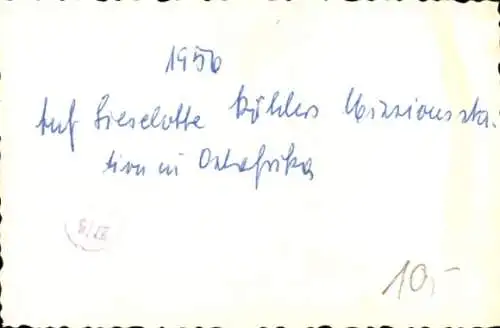 1956
Auf Lieselotte Köhlers Missionssta-
tion in Ostafrika
10,-